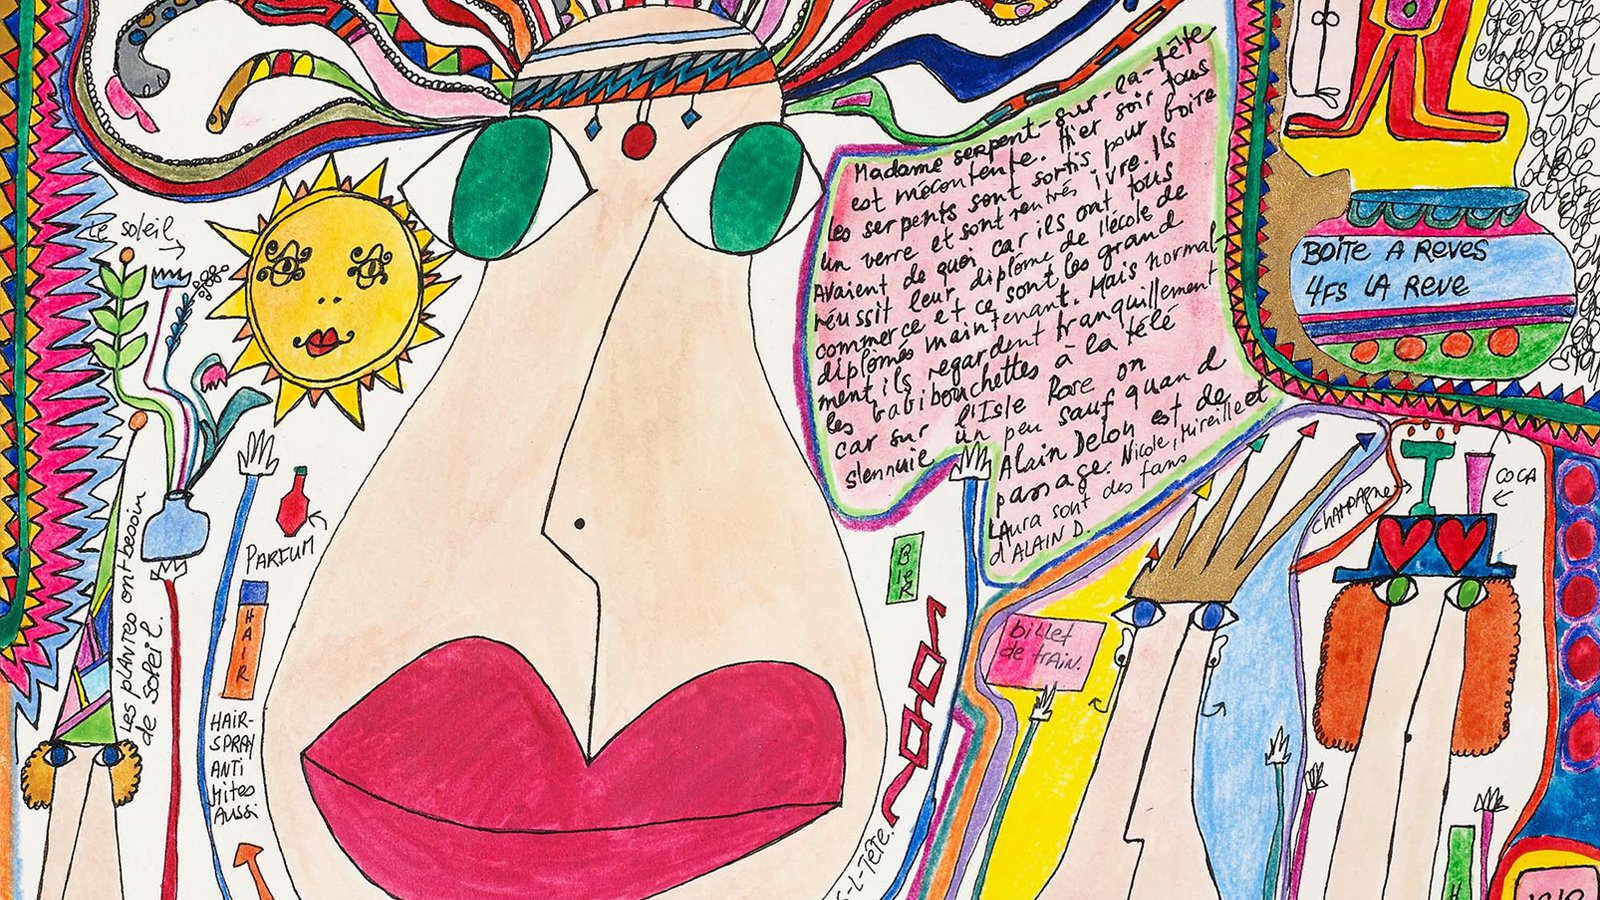 Le soleil
Madame serpent-sur-la-tête
est mécontente. Hier soir tous
les serpents sont sortis pour boire
un verre et sont rentrés ivre. Ils
avaient de quoi car ils ont tous
réussit leur diplôme de l'école de
commerce et ce sont les grand
diplomés maintenant. Mais normal-
ment, ils regardent tranquillement
les babibouchettes à la télé
car sur l'Isle Rose on
s'ennuie un peu sauf quand
Alain Delon est de
passage. Nicole, Mireille et
Laura sont des fans
d'ALAIN D.
BOÎTE A REVES
4FS LA REVE
PARFUM
Les plantes ont besoin
de soleil.
HAIR
HAIR-
SPRAY
ANTI
Mites
Aussi
BIER
billet
de train.
CHAMPAGNE
COCA
S-L-TÊTE.